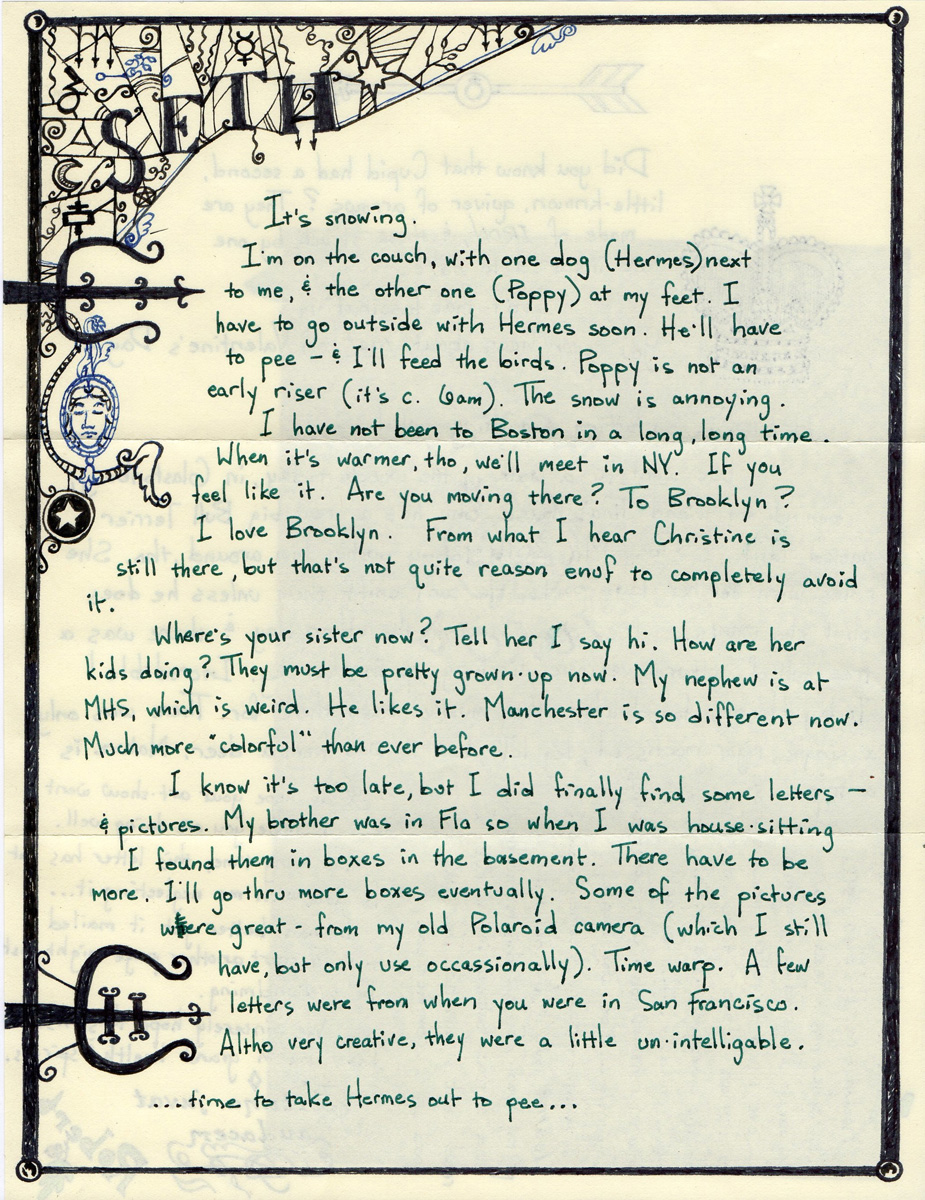 SETH
It's snowing.
I'm on the couch, with one dog (Hermes) next
to me, & the other one (Poppy) at my feet. I
have to go outside with Hermes soon. He'll have
to pee - & I'll feed the birds. Poppy is not an
early riser (it's c. 6am). The snow is annoying.
I have not been to Boston in a long, long time.
When it's warmer, tho, we'll meet in NY. If you
feel like it. Are you moving there? To Brooklyn?
I love Brooklyn. From what I hear Christine is
still there, but that's not quite reason enuf to completely avoid
it.
Where's your sister now? Tell her I say hi. How are her
kids doing? They must be pretty grown-up now. My nephew is at
MHS, which is weird. He likes it. Manchester is so different now.
Much more "colorful" than ever before.
I know it's too late, but I did finally find some letters -
& pictures. My brother was in Fla so when I was house-sitting
I found them in boxes in the basement. There have to be
more. I'll go thru more boxes eventually. Some of the pictures
were great - from my old Polaroid camera (which I still
have, but only use occassionally). Time warp. A few
letters were from when you were in San Francisco.
Altho very creative, they were a little un-intelligable.
...time to take Hermes out to pee...